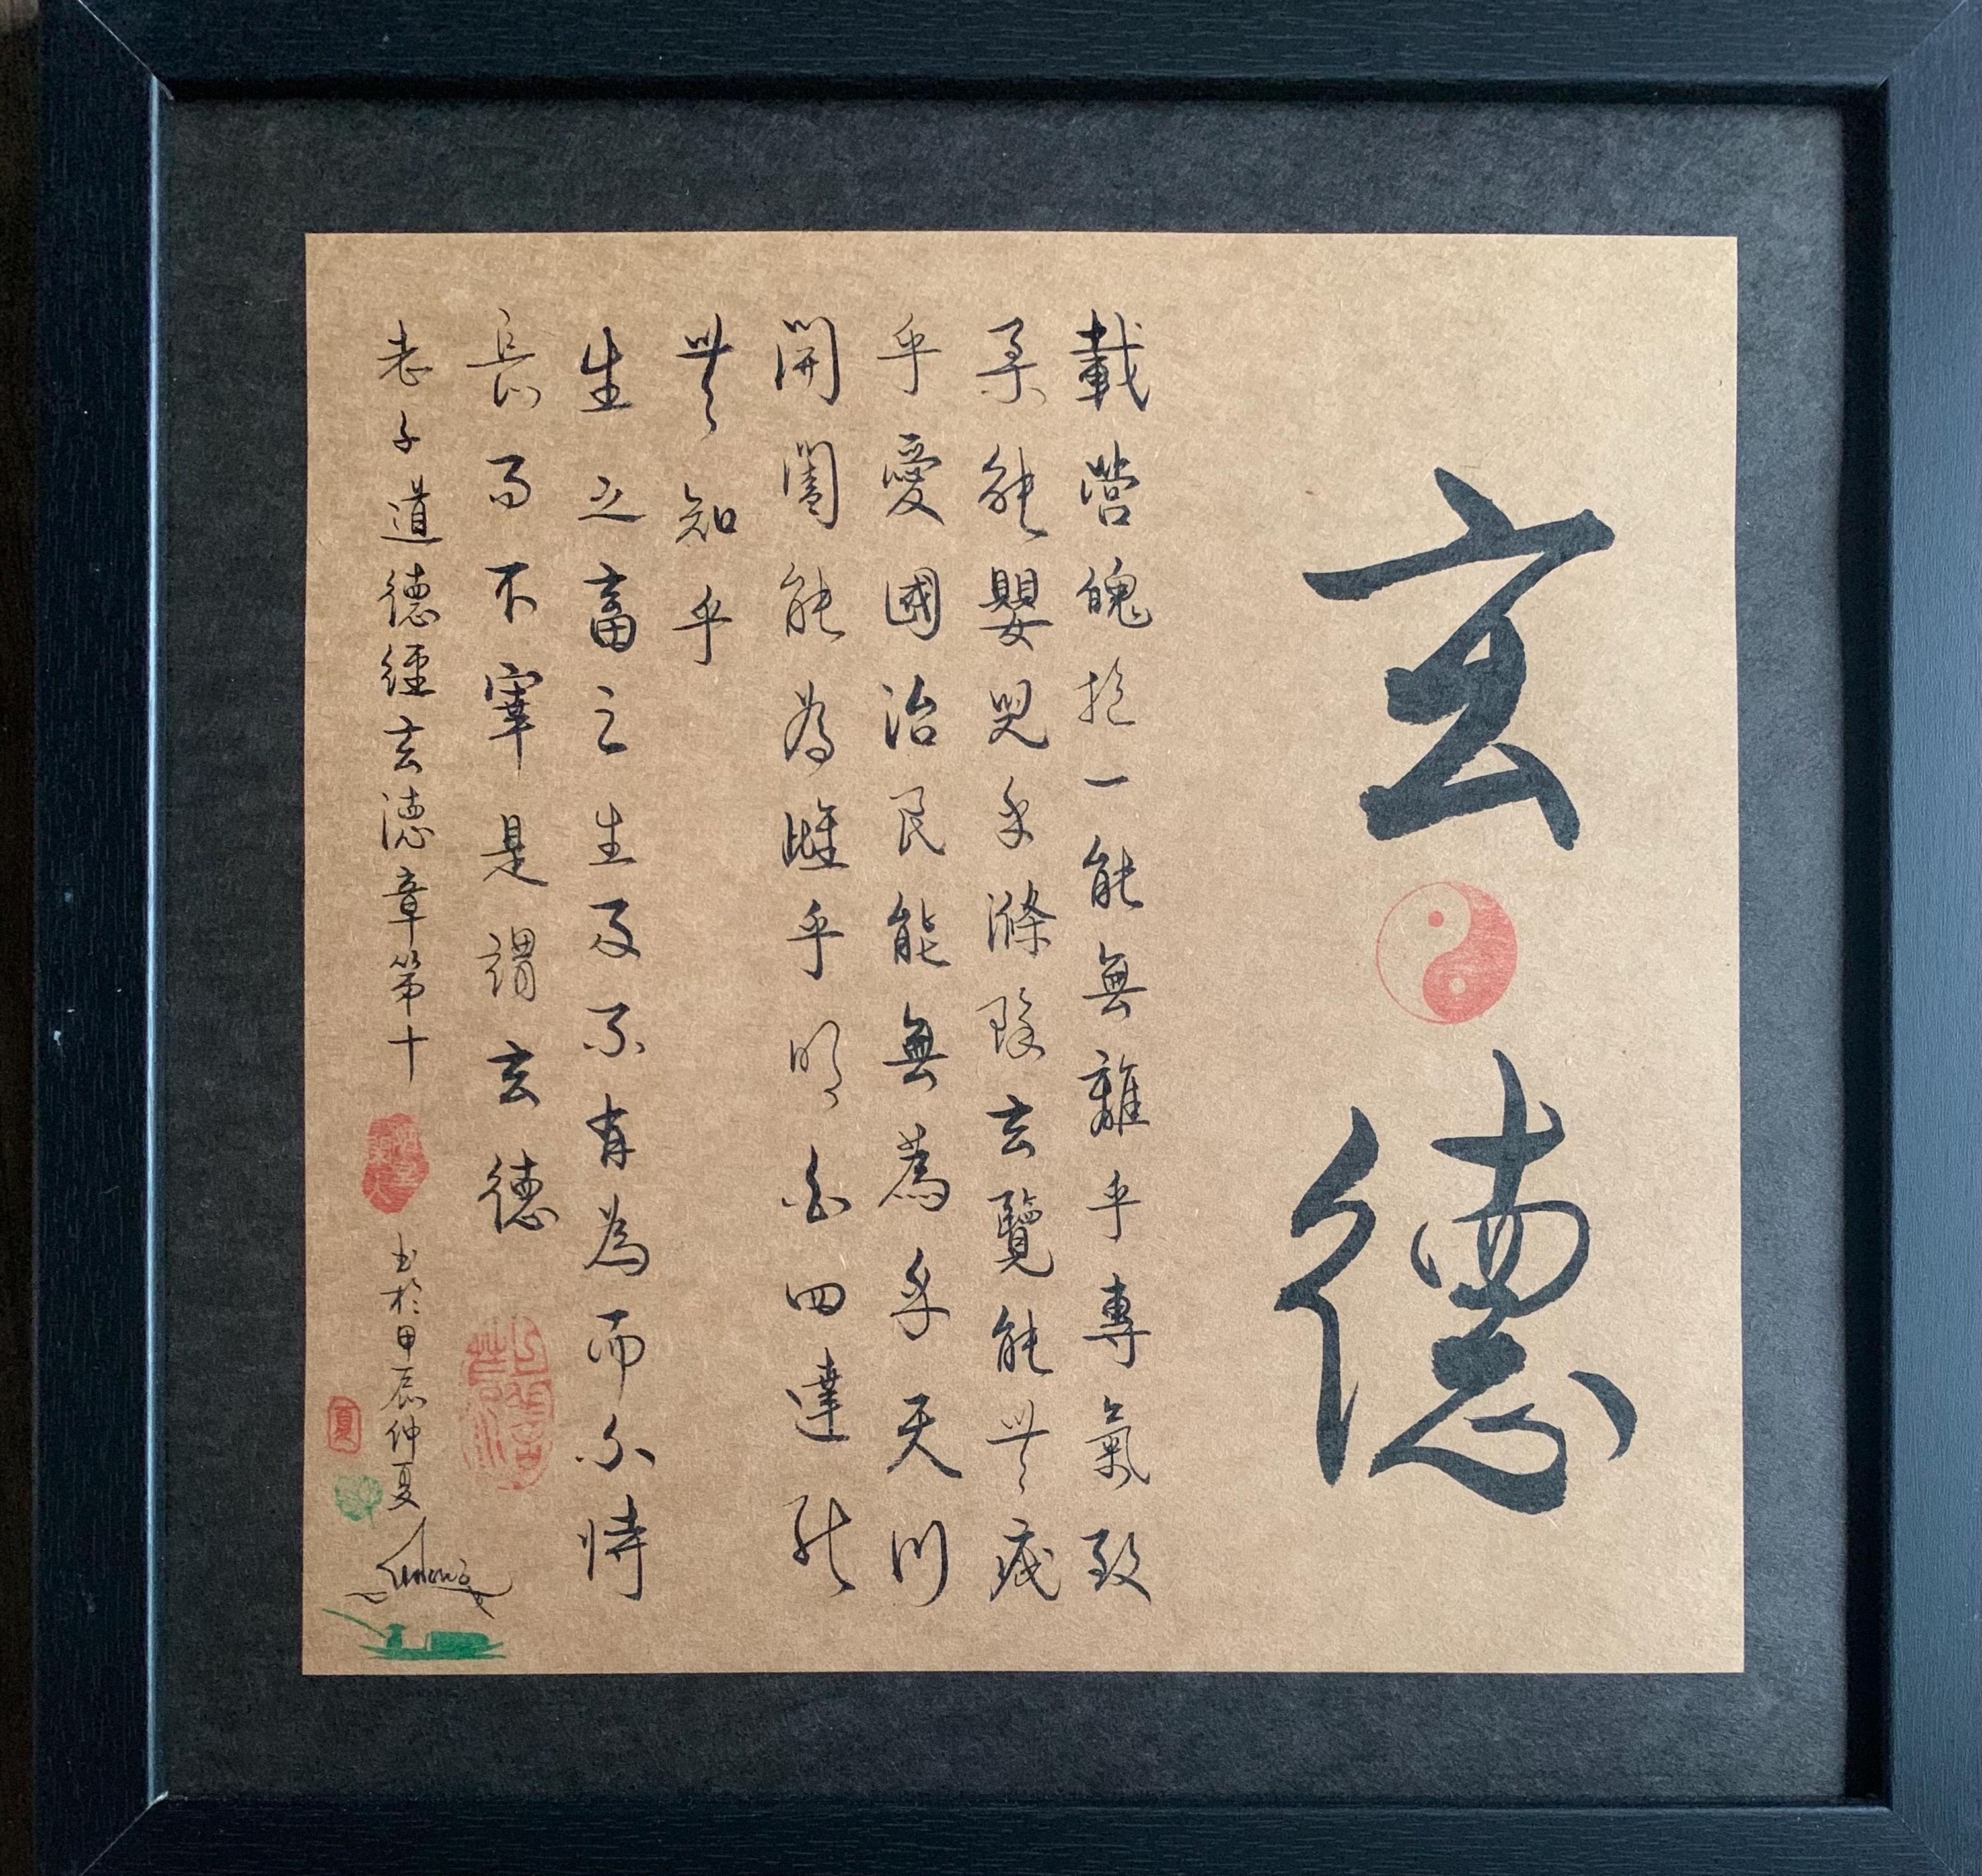 玄德
載營魄抱一能無離乎專氣致
柔能嬰兒乎滌除玄覽能無疵
乎愛國治民能無為乎天門
開闔能為雌乎明白四達能
無知乎
生之畜之生而不有為而不恃
長而不宰是謂玄德
老子道德經玄德章第十
書於甲辰仲夏
夏